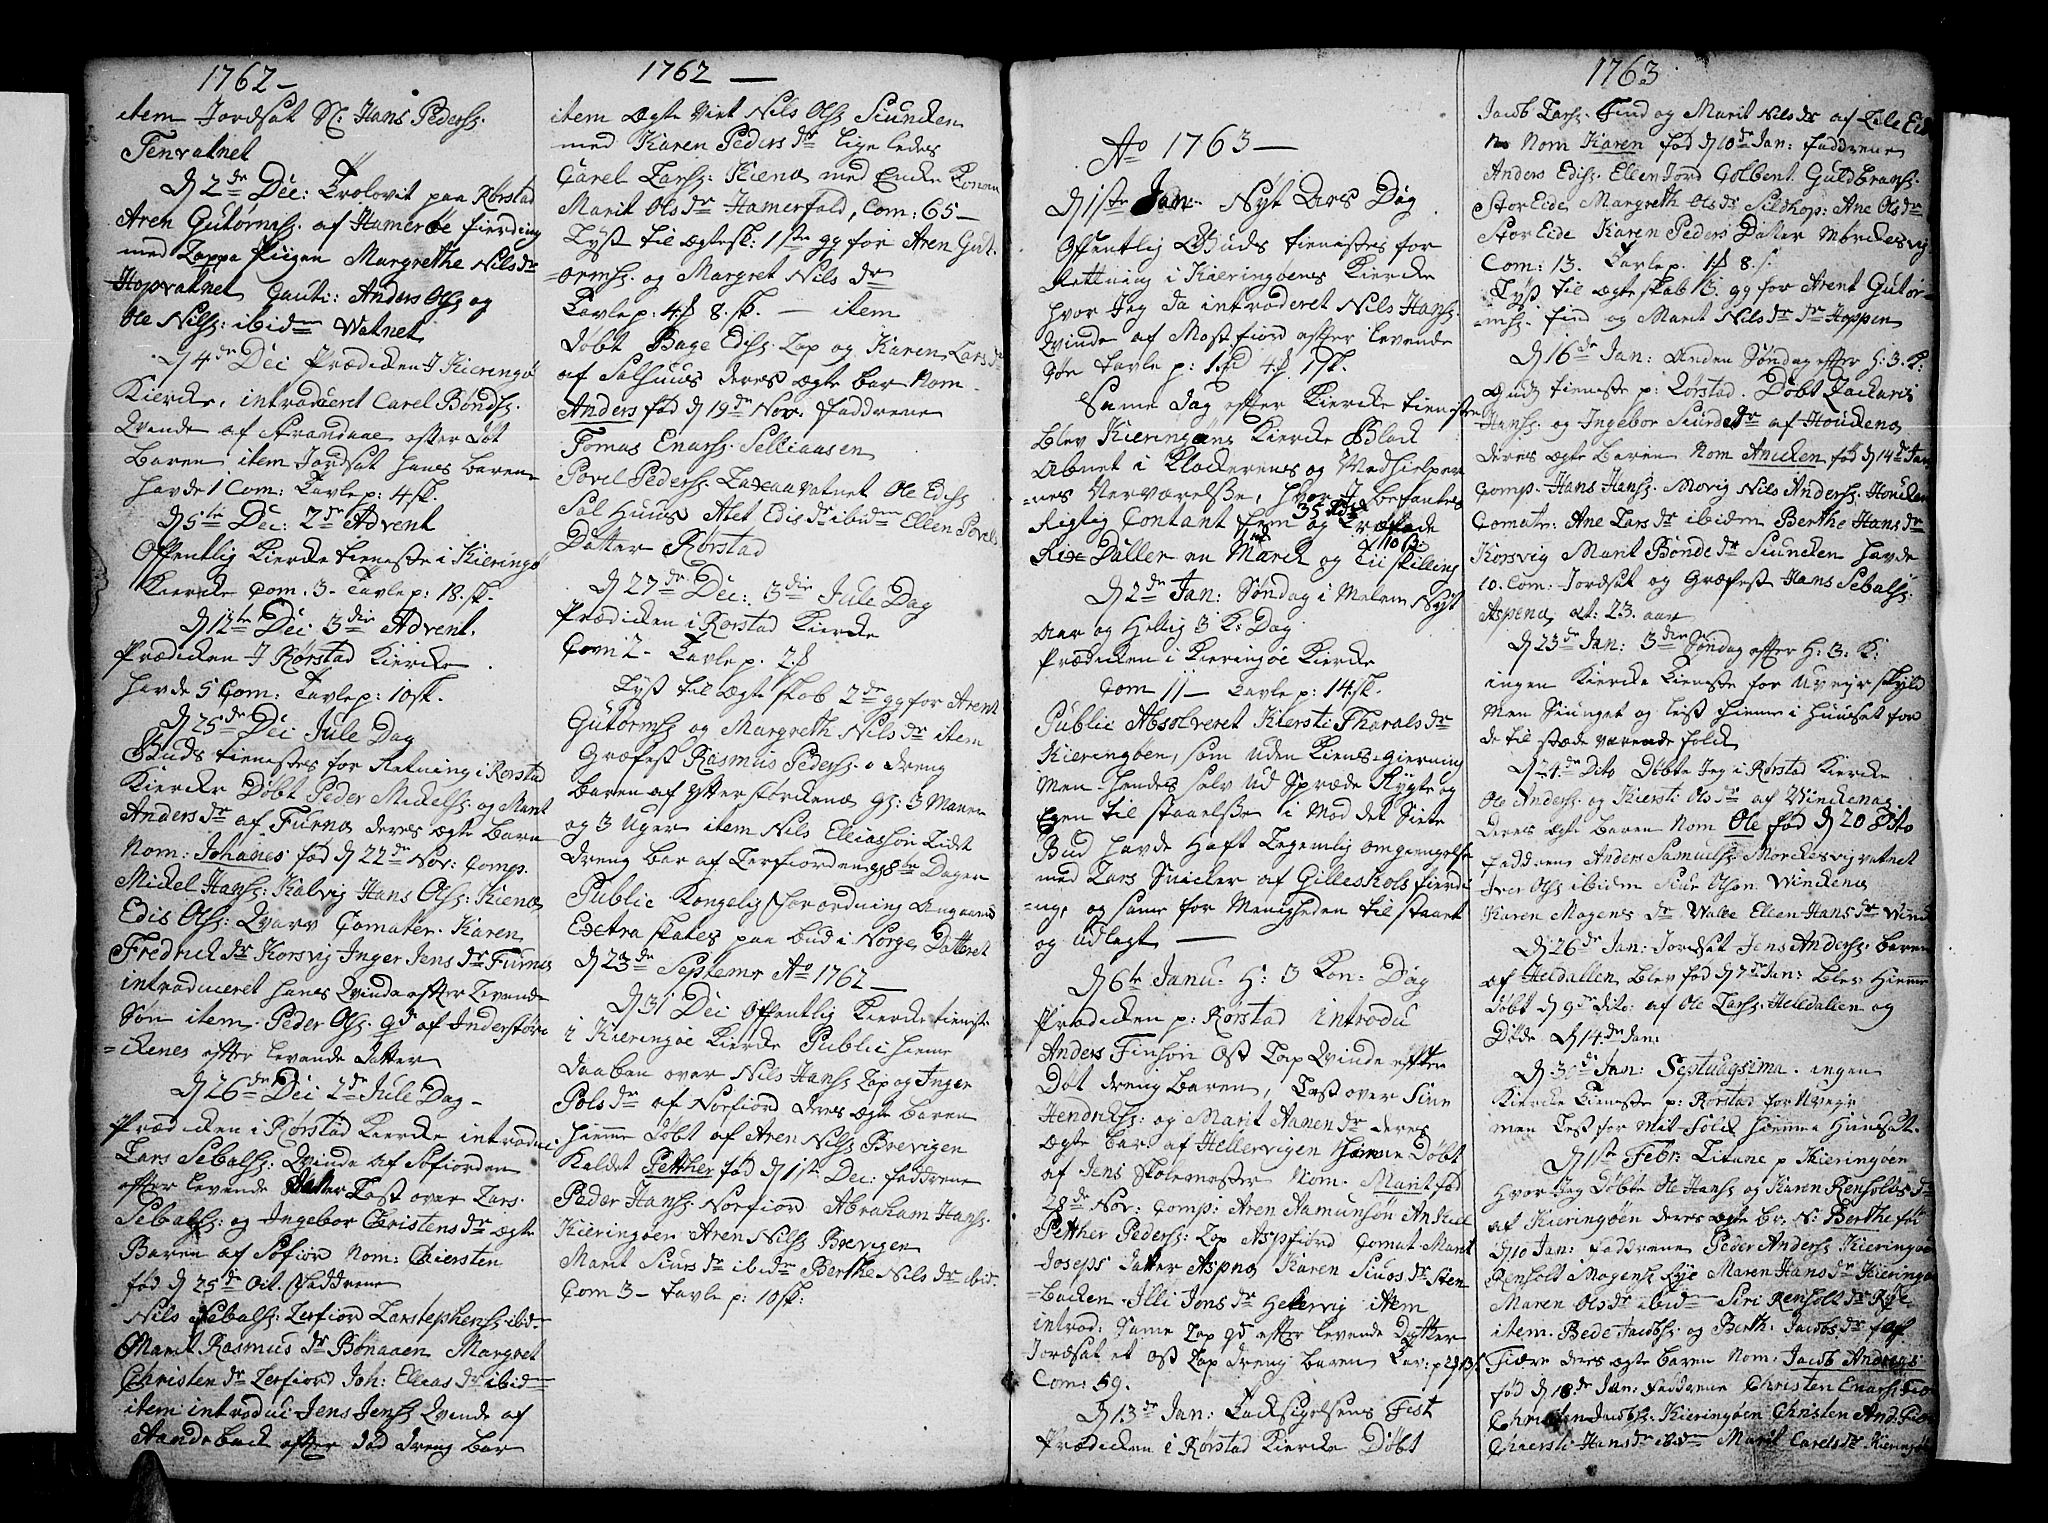 1762 –
item Jordsat Sl: Hans Peders:
Tenvatnet
D 2de Dec: Trolovit paa Rørstad
Aren Gutorms: af Hamerøe fierding
med Lappe Piigen Margrethe Nils dr
Hopvatnet Cauti: Anders Ols og
Ole Nils: ibidm Watnet
D 4de Dec Prædicken J Kieringø
Kiercke, introduceret Carel Bonds:
Qvinde af Strandaae efter Døt
Baren item Jordsat hans Baren
havde 1 Com: Tavle p: 4 sk.
D 5te Dec: 2de Advent
Offentlig Kiercke tieneste i Kieringø
Kiercke Com. 3 – Tavle p: 18. sk.
D 12te Dec: 3die Advent.
Prædicken J Rørstad Kiercke
havde 5 Com: Tavle p: 10 sk.
D 25de Dec: Jule Dag
Guds tienestes for Retning i Rørstad
Kiercke Døbt Peder Mickels: og Marit
Anders dr af Furnæ deres ægte Barn
Nom: Johanes fød D 22de Nov: Comp.
Mickel Hans: Kalvig Hans Ols: Kienæ
Edis Ols: Qvarv Comater. Karen
Fredrick dr Korsvig Inger Jens dr Furnæ
introduceret hanes Qvinde efter Levende
Søn item. Peder Ols: qd af Inderstøre
=ckenes efter levende Datter
D 26de Dec 2de Jule Dag –
Prædicken i Rørstad Kiercke introduc
Lars Sebals: Qvinde af Sofiorden
efter levende Datter Læst over Lars
Sebals: og Ingebor Christens dr ægte
Baren af Sofiord Nom: Chiersten
fød D 25de Oct. Faddrene
Nils Sebals: Lerfiord Larstephens: ibid.
Marit Rasmus dr Bønaaen Margret
Christen dr Lerfiord Joh: Ellias dr ibidm
item introduc: Jens Jens: Qvinde af
Aandsback efter død dreng bar
1762 –
item ægte Viet Nils Ols Siuncken
med Karen Peders dr lige ledes
Carel Lars: Kienæ med Encke Konen
Marit Ols dr Hamerfald, Com: 65 –
Lyst til ægtesk: 1ste gg for Aren Gut
=orms: og Margret Nils dr
Tavle p: 4 8. sk. – item
Døbt Bage Edis: Lap og Karen Lars dr
af Salhuus deres ægte bar Nom
Anders fød D 19de Nov: Faddrene
Tomas Enars: Selliaasen
Povel Peders: Laxaavatnet Ole Edis
Sal Huus Abet Edis dr ibidm Ellen Povels
Datter Rørstad
D 27de Dec: 3die Jule Dag
Prædicken i Rørstad Kiercke
Com: 2 – Tavle p. 2.
Lyst til ægte skab 2de gg for Arent
Gutorms: og Margreth Nils dr item
Græfest Rasmus Peders: dreng
baren af Ytterstørckenæ gl: 3 Maaner
og 3 Uger item Nils Elliassøn Lidet
dreng bar af Lerfiorden gl 8te Dager
Public Kongelig Forordning Angaaend
Extra skates paa bud i Norge Datteret
D 23de Septemr Ao 1762 –
D 31 Dec Offentlig Kiercke tienst
i Kieringøe Kiercke Public hieme
daaben over Nils Hans: Lap og Inger
Pols dr af Norfiord deres ægte baren
Hieme døbt af Aren Nils: Brevigen
Kaldet Petther fød D 1ste Dec: faddrene
Peder Hans: Norfiord Abraham Hans:
Kieringøen Aren Nils: Brevigen
Marit Siurs dr ibidm Berthe Nils dr ibid.
Com 3 – Tavle p: 10 sk:
Ao 1763 –
D 1ste Jan: Nyt Aars Dag
Offentlig Guds tienestes for
Rettning i Kieringøenes Kiercke
hvor Jeg da introderet Nils Hans:
Qvinde af Mostfiord efter levende
søn Tavle p: 4. 1 sk.
Same dag efter Kiercke tieneste
blev Kieringøens Kiercke Block
Abnet i Klockerenes og Medhielper
=nes Nerværelse, hvor J befantes
Rigtig Contant fem og Trætiade 35 Rd
Rix Daller en Marck og Tii skilling
D 2de Jan: Søndag i Melem Nyt
Aar og Hellig 3 K: Dag
Prædicken i Kieringøe Kiercke
Com 11 – Tavle p: 14. sk.
Public Absolveret Kiersti Tharals dr
Kieringøen, som uden Kiens-gierning
Men hendes selv ud spræde Rygte og
Egen til staaelse i Mod det Siete
Bud havde haft Legemlig omgiengelse
med Lars Snicker af Gilleskols fierdi
=ng, og same for Menigheden til staaet
og udlagt –
D 6te Janu. H: 3 Kon: Dag
Prædicken p: Rørstad introdu
Anders Finsøn Ost Lap Qvinde efter
Døt dreng Baren, Læst over Sinn
Hendricks: og Marit Aanen dr deres
ægte bar af Hellervigen Hieme Døbt
af Jens Skolemester Nom. Marit fød
28de Nov: Comp: Aren Aamunsøn Ankiil
Petther Peders: Lap Aspfiord Comat. Marit
Joseps datter Aspnæ Karen Siuos dr Sten
=backen Illi Jons dr Hellervig Item
introd: Same Lap qd efter levende datter
Jordsat et Ost Lap dreng baren
Com: 59.
D 13de Jan: Tacksigelsens Fest
Prædicken i Rørstad Kiercke Døbt
1763
Jacob Lars: Find og Marit Nils dr af Lile Eide
Nom Karen fød D 10de Jan: faddrene
Anders Edis: Ellen Jord Golbent Guldbrans:
StorEide Margreth Ols dr Silshop: Ane Ols dr
StorEide Karen Peders Datter Mørckesvig
Com: 13. Tavle p. 8.
Lyst til ægte skab 3. gg for Arent Gutor=
=ms: find og Marit Nils dr Hoppen
D 16de Jan: Anden Søndag efter H: 3. K:
Gudz tieneste p: Rørstad. Døbt Zackaris
Hans: og Ingebor Siurds dr af Houckenæs
deres ægte Baren Nom Anicken fød D 14de Jan
Comp. Hans Hans: Movig Nils Anders: Houcken
Comatr: Ane Lars dr ibidem Berthe Hans dr
Korsvig Marit Bonde dr Siuncken havde
10. Com: Jordsat og Græfest Hans Sebals:
Aspenæ æt: 23. aar
D 23de Jan: 3die Søndag efter H: 3: K:
ingen Kiercke tieneste for Uveyr skyld
Men Siunget og læst hieme i Huuset for
de til stæde værende folck
D 24de Dito Døbte Jeg i Rørstad Kiercke
Ole Anders: og Kiersti Ols dr af Vinckenæs
deres ægte Baren Nom Ole fød D 20 dito
faddrene Anders Samuels: Morckesvig vatnet
Iver Ols ibidem Siur Olsøn Winckenæ
Karen Mogenes dr Walbe Ellen Hans dr Winck
D 26de Jan: Jordsat Jens Anders: Baren
af Heldallen blev fød D 7de Jan: blev Hieme
døbt D 9de dito: af Ole Lars: Helledallen og
Døde D 14de Jan:
D 30de Jan: Septuagsima. ingen
Kiercke tieneste p: Rørstad for Uveyr
men Læst for mit Folck hiemme i Huuset.
D 1ste Febr: Litane p Kieringøen
Hvor Jeg Døbte Ole Hans: og Karen Renholts dr
af Kieringøen deres ægte br. N: Berthe fød
D 10 Jan: Faddrene Peder Anders: Kieringø
Renholt Mogens: Rye Maren Hans dr Kieringø
Maren Ols dr ibidm Siri Renholt dr Rye
item. Bede Jacobs: og Berth. Jacobs dr af
Fiære deres ægte Baren Nom: Jacob Andreas
fød D 18de Jan: Faddrene Christen Enars:
Christen Jacobs: Kieringøen Christen And:
Chiersti Hans dr ibidm Marit Carels dr Kieringø